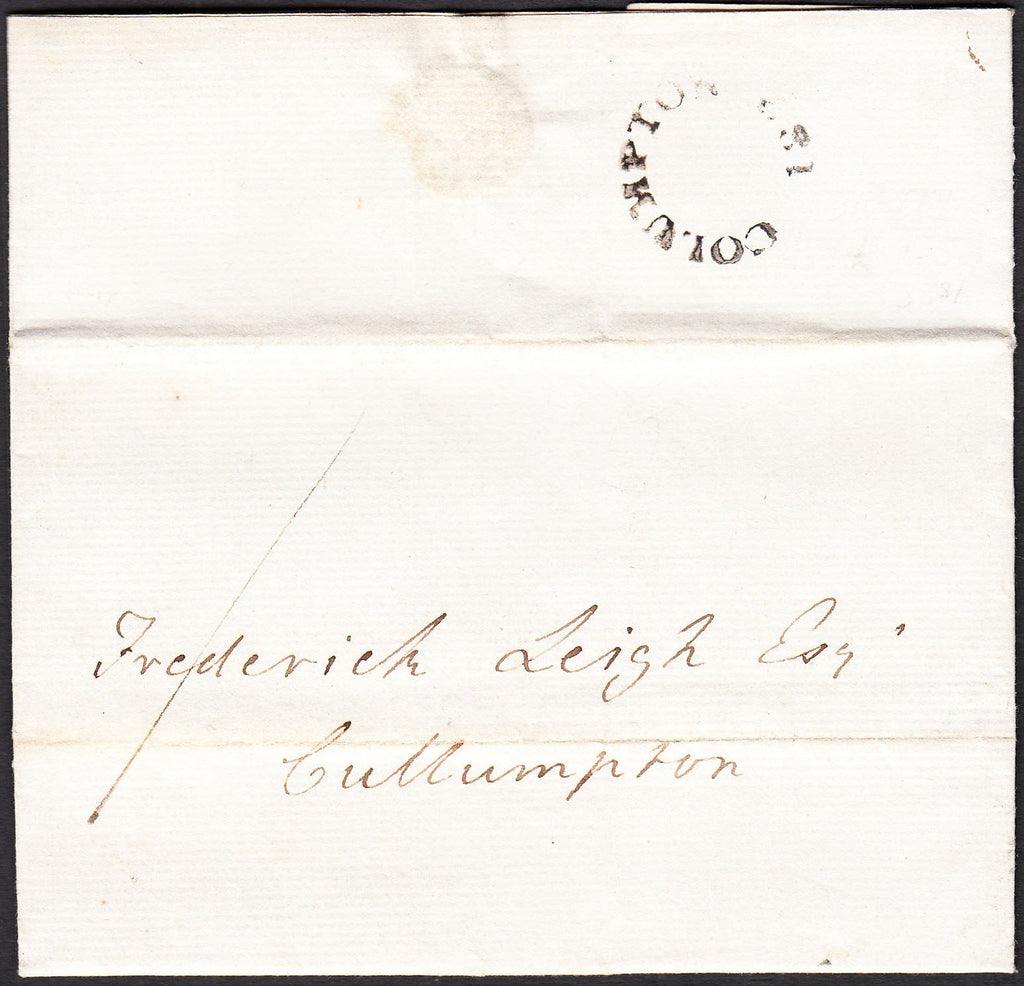 COLUMPTON
Frederick Leigh Esq'
Cullumpton